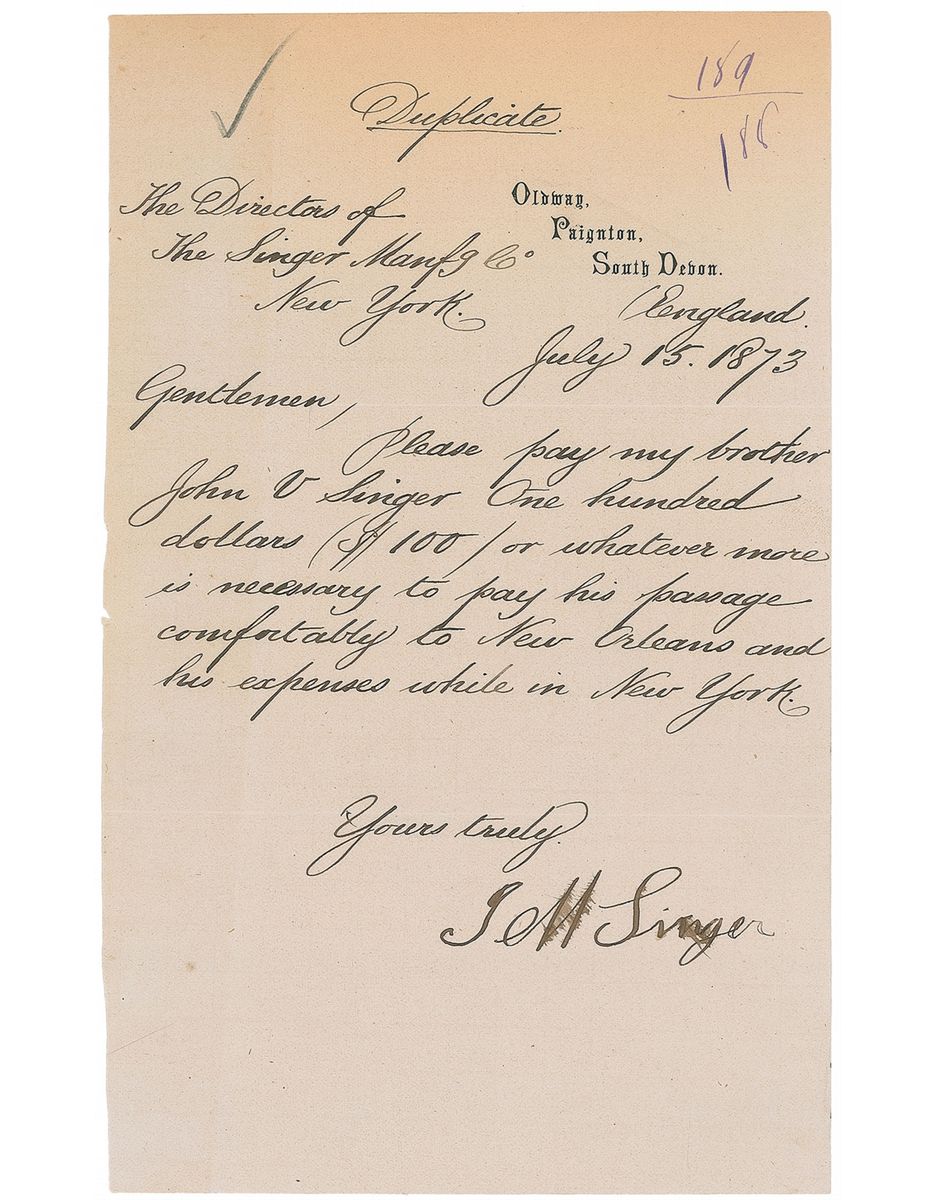 189
188
Duplicate.
The Directors of
The Singer Manfg Co
New York.
Oldway,
Paignton,
South Devon.
England.
July 15. 1873
Gentlemen,
Please pay my brother
John V Singer One hundred
dollars ($100/ or whatever more
is necessary to pay his passage
comfortably to New Orleans and
his expenses while in New York.
Yours truly.
I M Singer